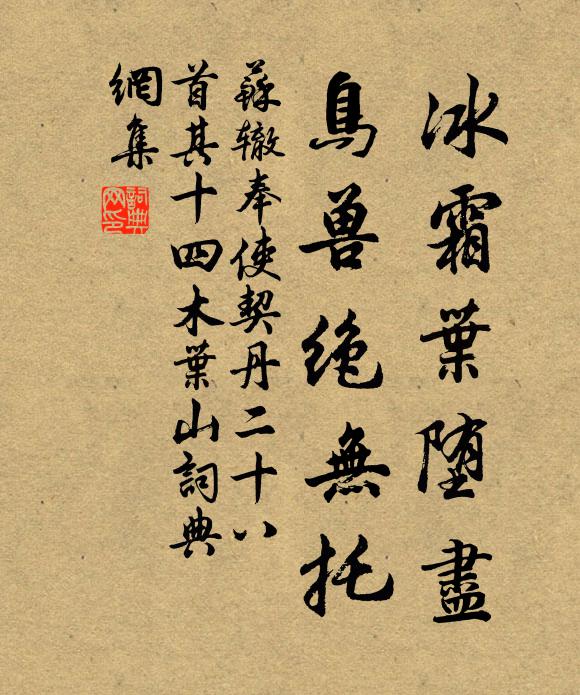 冰霜葉堕盡
鳥獸絶無托
蘇辙奉使契丹二十八
首其十四木葉山詞典
網集
詞典
网印